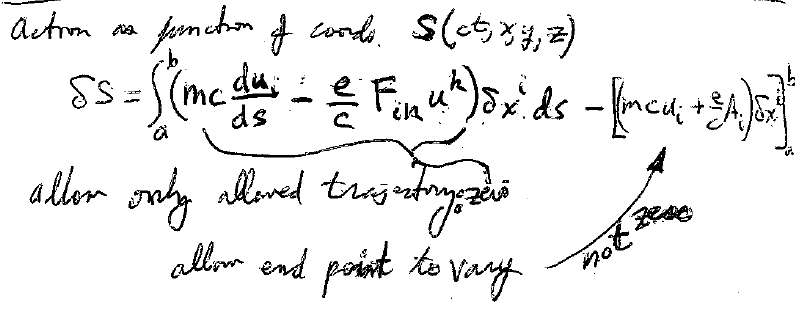 Action as function of coords. S(ct, x, y, z)
δS = ∫_a^b (mc du_i/ds − e/c F_{ik} u^k) δx^i ds − [(mcu_i + e/c A_i) δx^i]_a^b
allow only allowed trajectory. zero
allow end point to vary
not zero